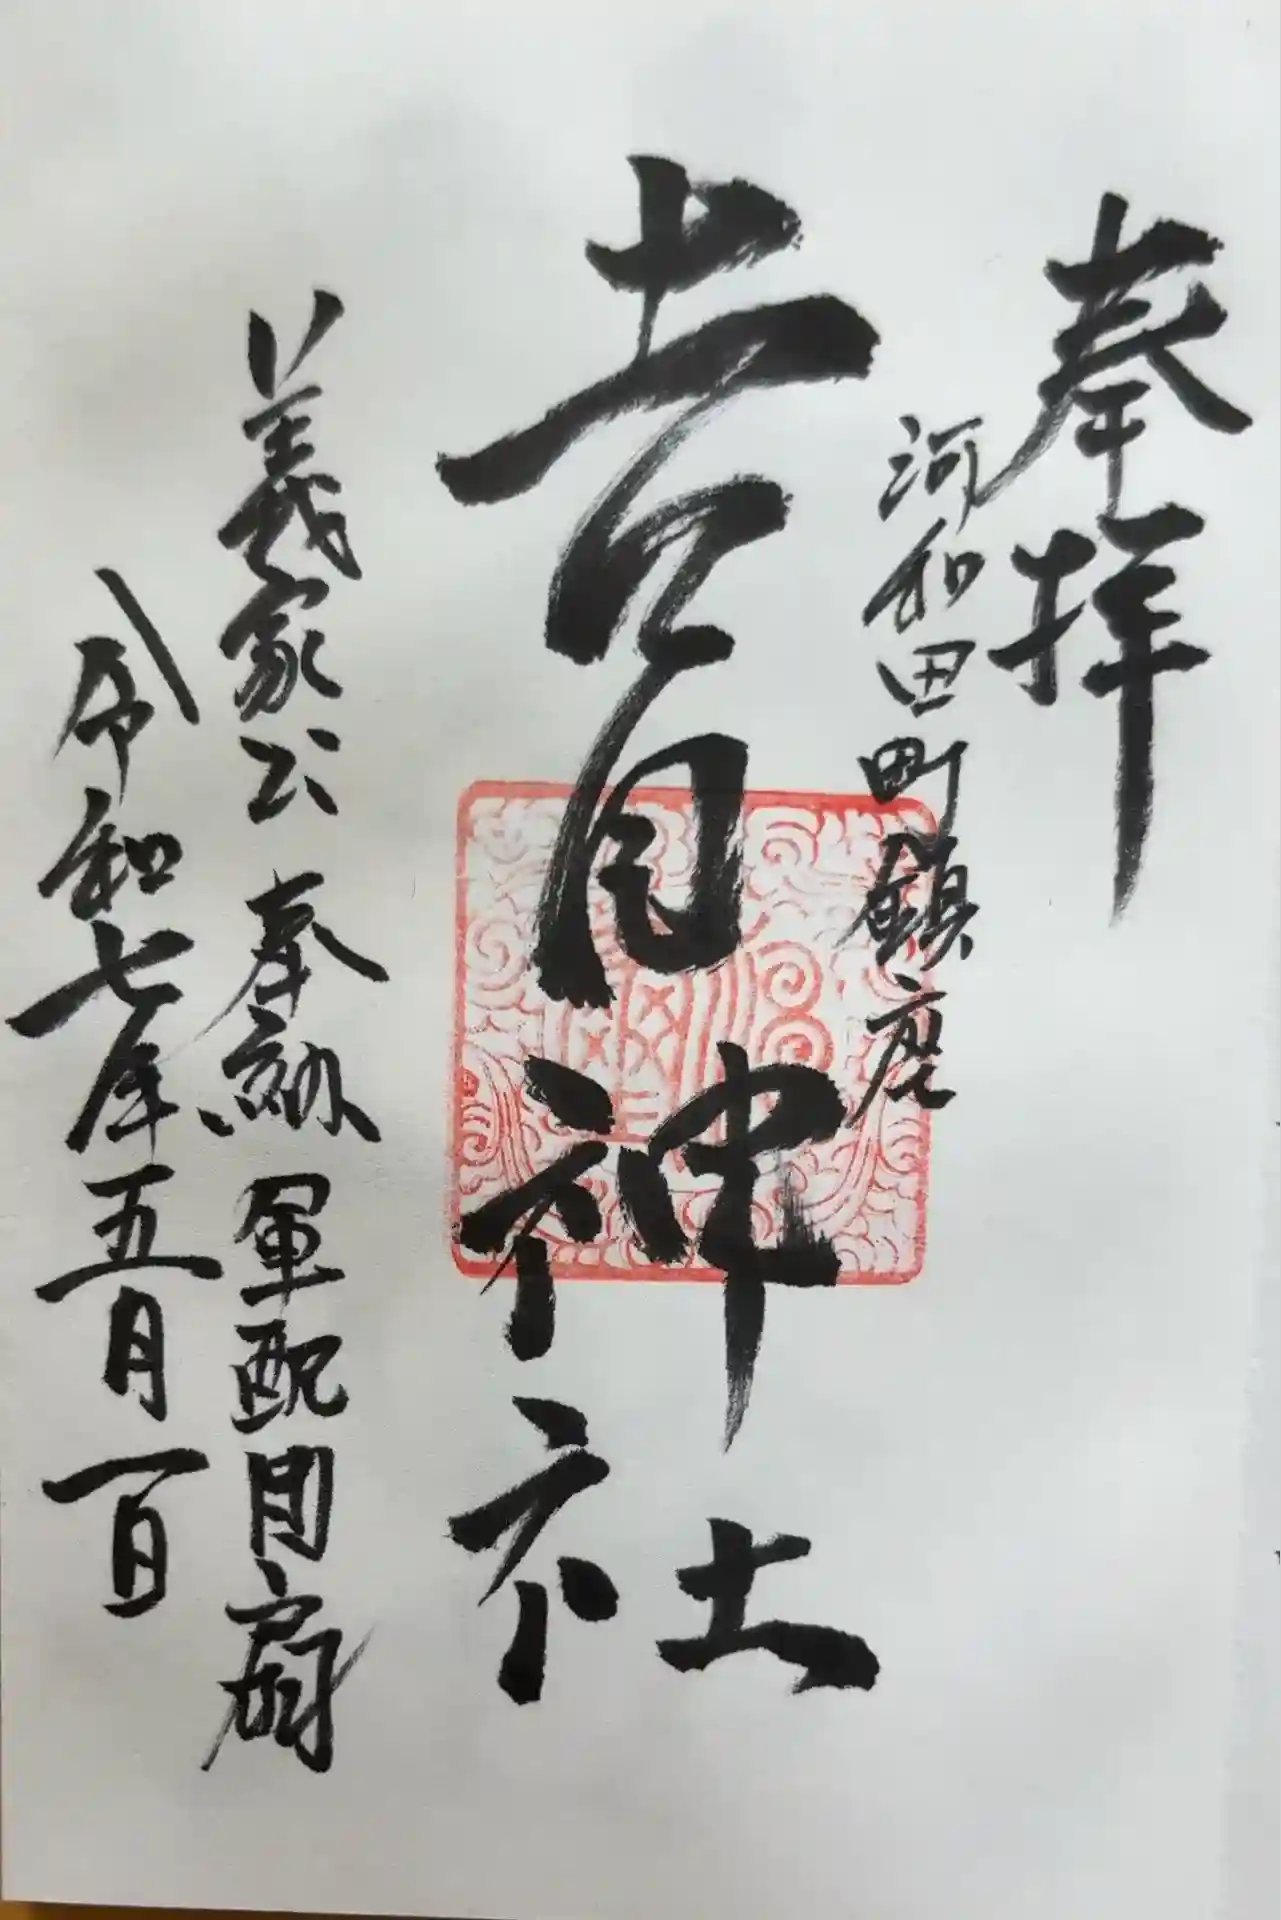 奉拝
河和田町鎮座
春日神社
義家公 奉納 軍配団扇
令和七年五月一日